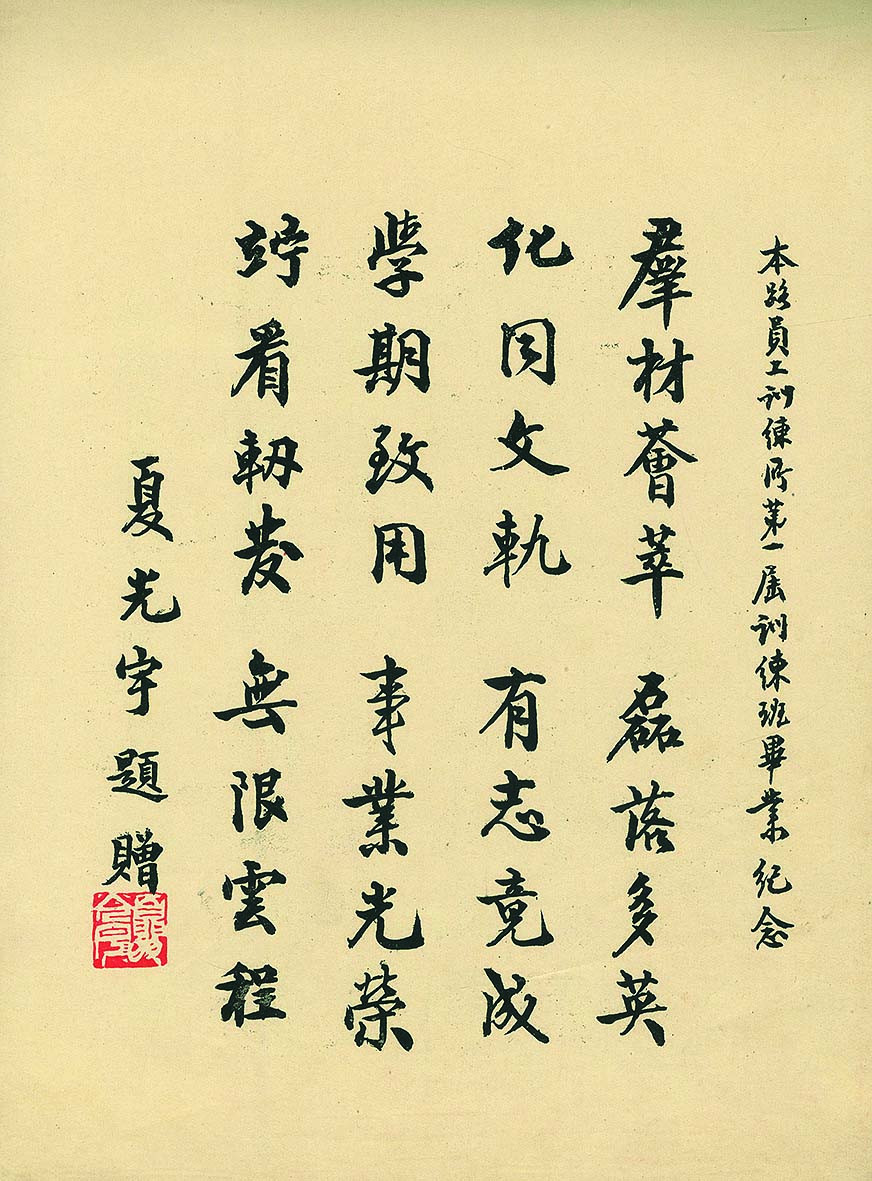 本路員工訓練所第一屆訓練班畢業紀念
羣材薈萃 磊落多英
化同文軌 有志竟成
學期致用 事業光榮
竚看軔發 無限雲程
夏光宇題贈